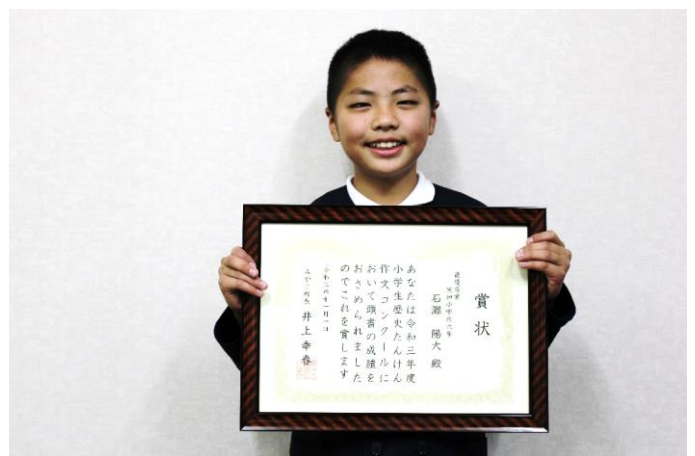 賞状
最優秀賞
小学校六年
石灘 陽大 殿
あなたは令和三年度
小学生歴史たんけん
作文コンクールに
おいて頭書の成績を
おさめられました
のでこれを賞します
令和三年十一月一日
井上幸春